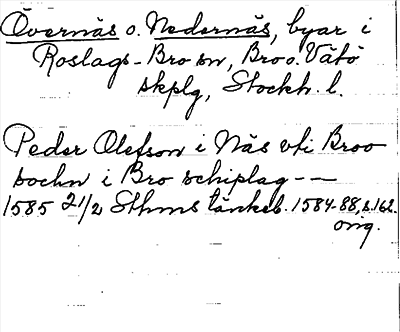 Övernäs o. Nedernäs, byar i
Roslags-Bro sn, Bro o. Vätö
skplg, Stockh. l.
Peder Olefson i Näs vti Broo
sochn i Bro schiplag --
1585 21/2 Sthms tänkeb. 1584-88, s. 162.
orig.